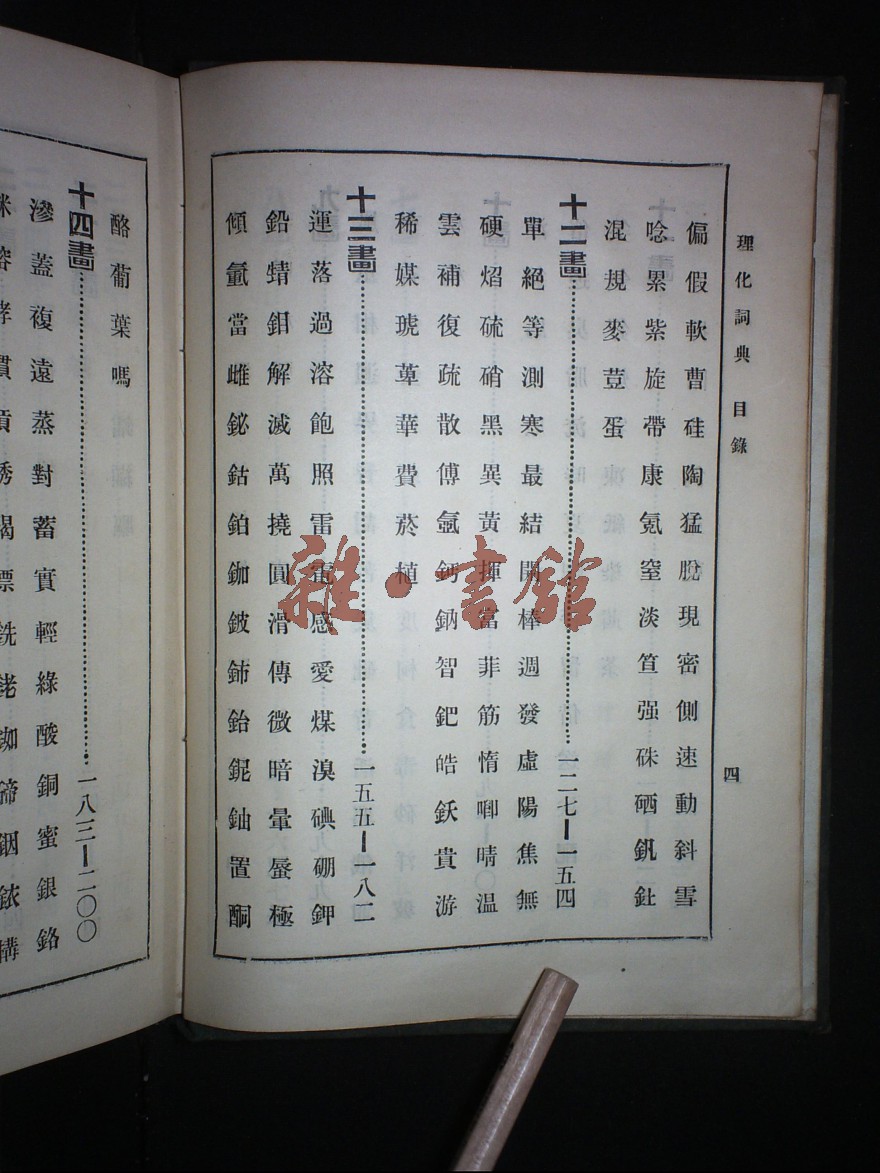 理化詞典 目錄
四
偏假軟曹硅陶猛脫現密側速動斜雪
唸累紫旋帶康氪窒淡笪强硃硒釩釷
混規麥荳蛋
十二畫 一二七—一五四
單絕等測寒最結開棒週發虛陽焦無
硬熖硫硝黑異黃揮當菲筋惰喞晴温
雲補復疏散傅氬鈣鈉智鈀皓鈥貴游
稀媒琥萆華費菸植
十三畫 一五五—一八二
運落過溶飽照雷電感愛煤溴碘硼鉀
鉛蜻鉬解滅萬撓圓滑傳微暗暈蜃極
傾氭當雌鉍鈷鉑鉫鈹鈽鉿鈮鈾置酮
酪葡葉嗎
十四畫 一八三—二〇〇
滲蓋複遠蒸對蓄實輕綠酸銅蜜銀鉻
雜·書館